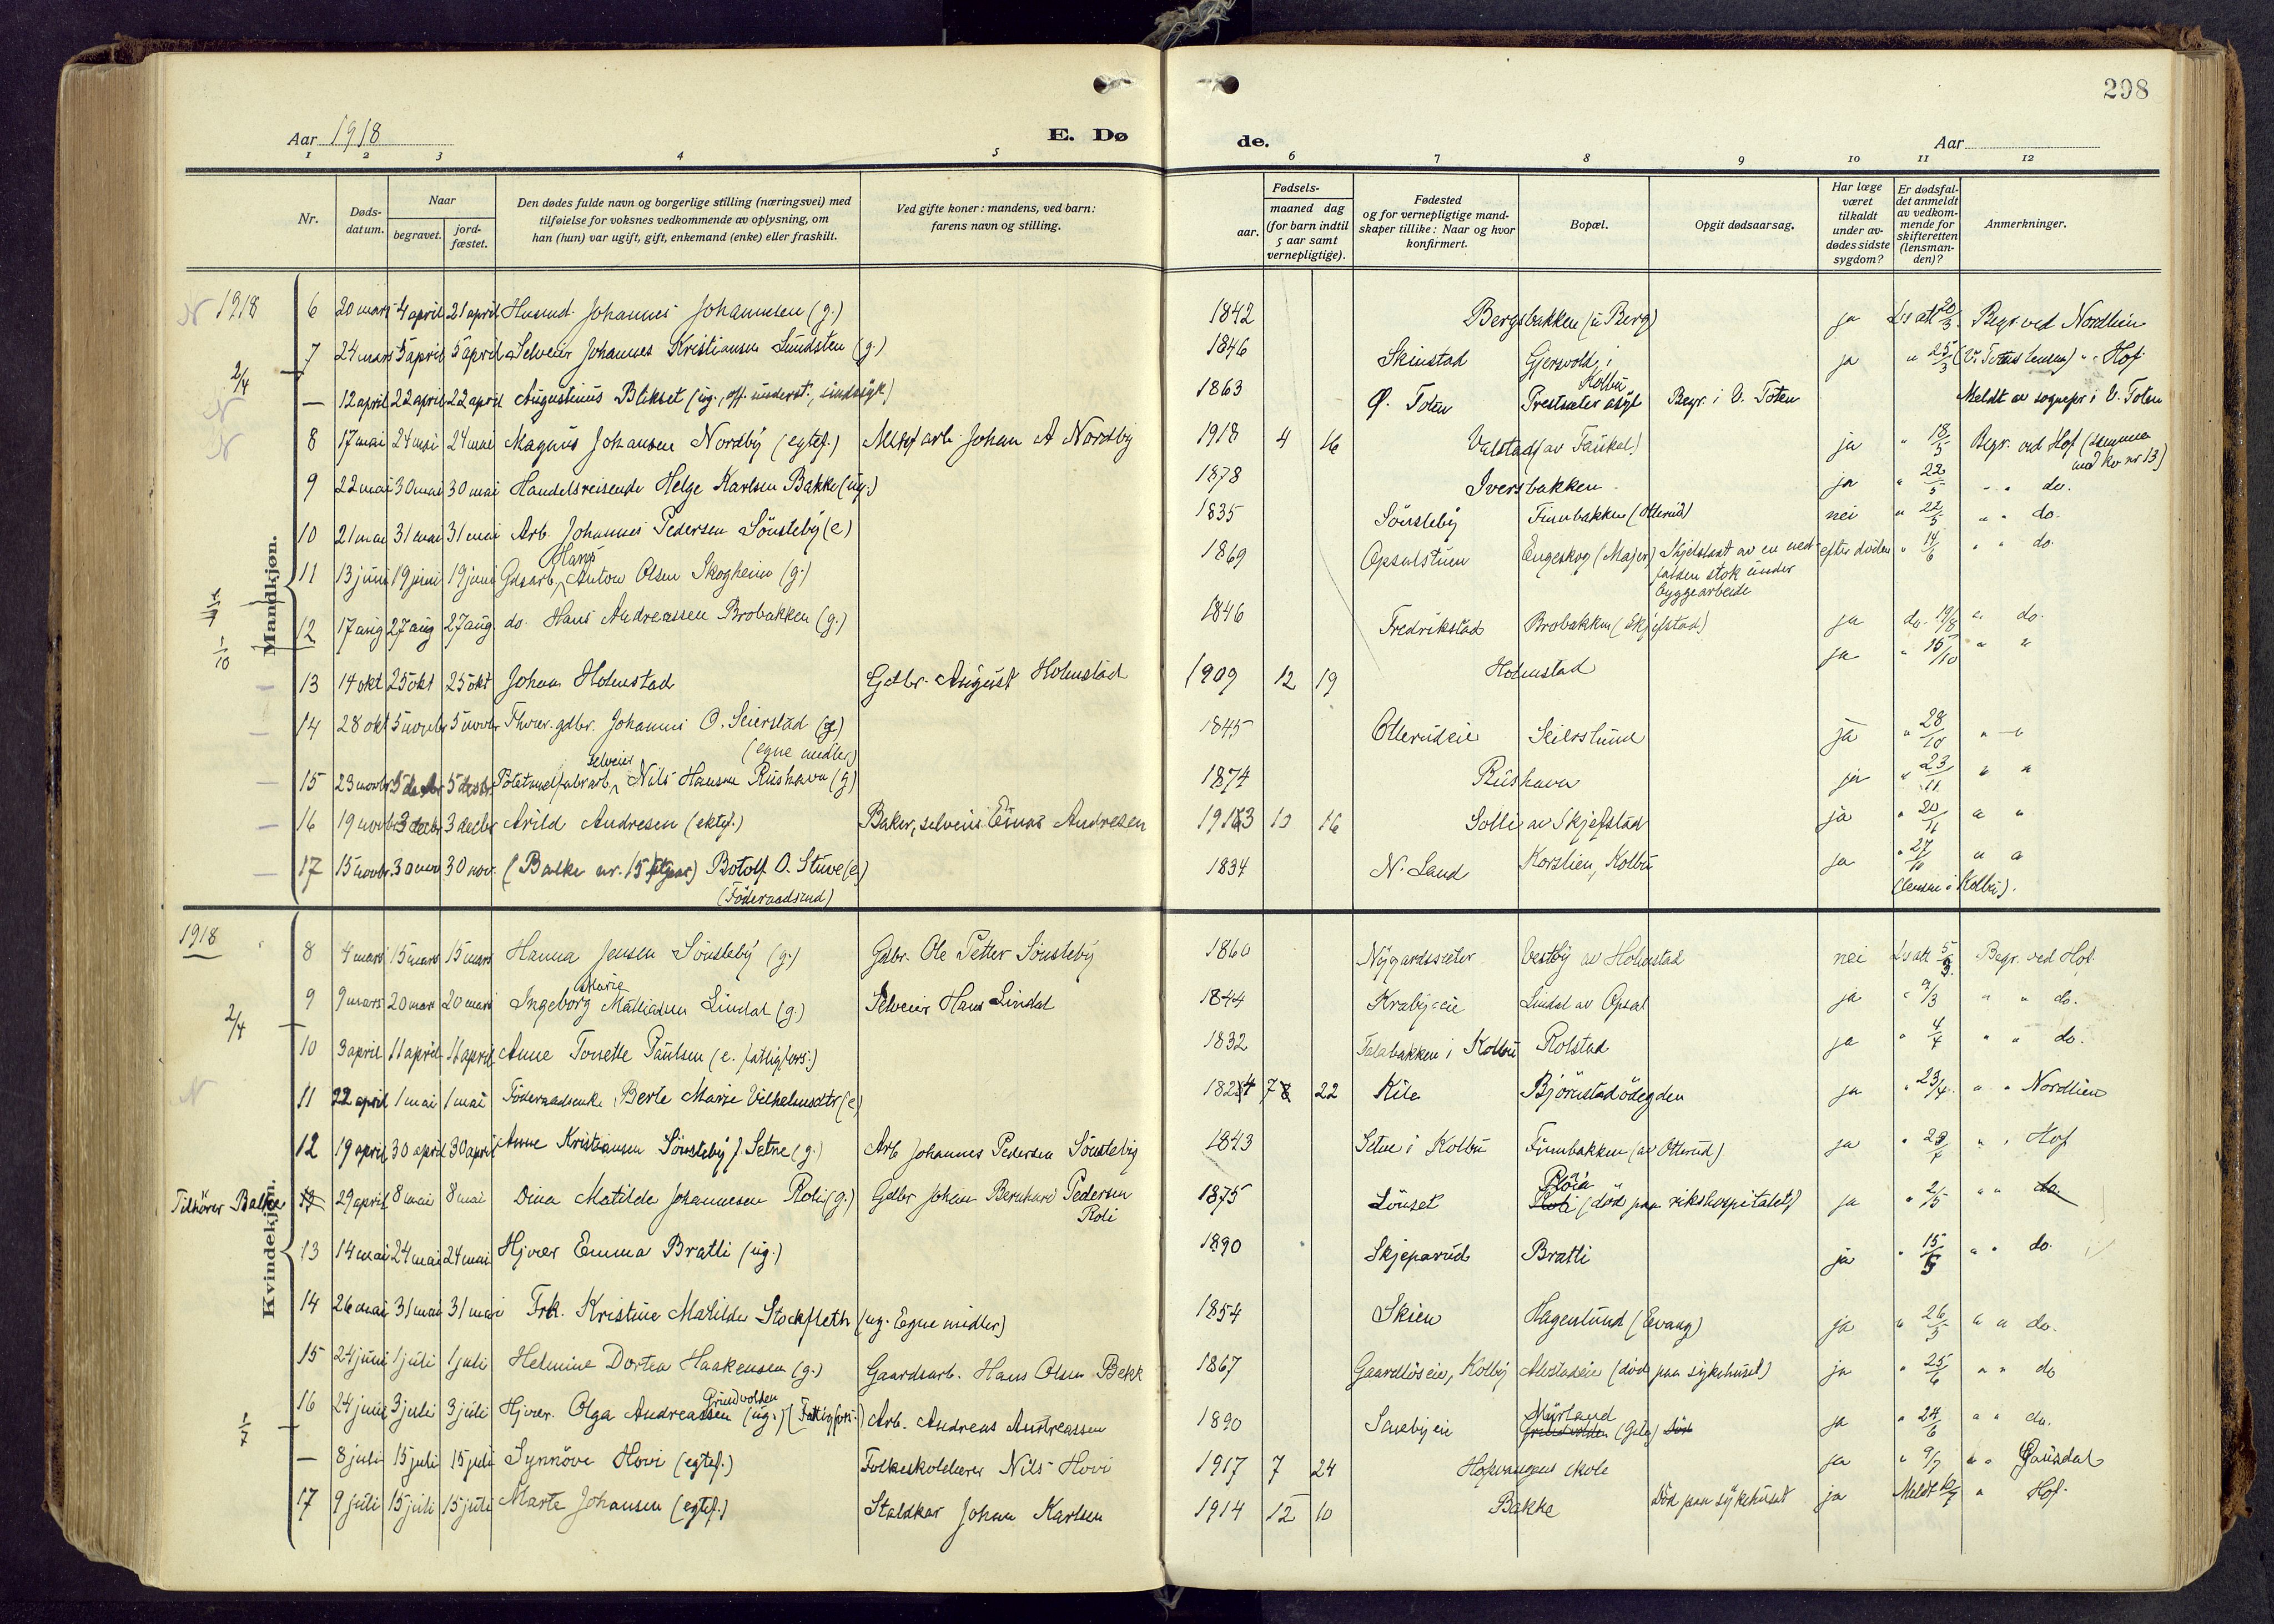 298
Aar 1918
E. Dø
de.
Aar
1 2 3 4 5 6 7 8 9 10 11 12
Nr.
Døds-
datum.
Naar
begravet.
jord-
fæstet.
Den dødes fulde navn og borgerlige stilling (næringsvei) med
tilføielse for voksnes vedkommende av oplysning, om
han (hun) var ugift, gift, enkemand (enke) eller fraskilt.
Ved gifte koner: mandens, ved barn:
farens navn og stilling.
Fødsels-
aar.
maaned dag
(for barn indtil
5 aar samt
vernepligtige).
Fødested
og for vernepligtige mand-
skaper tillike: Naar og hvor
konfirmert.
Bopæl.
Opgit dødsaarsag.
Har læge
været
tilkaldt
under av-
dødes sidste
sygdom?
Er dødsfal-
det anmeldt
av vedkom-
mende for
skifteretten
(lensman-
den)?
Anmerkninger.
Mandkjøn.
N 1918 6 20 mars 4 april 21 april Husmd. Johannes Johannesen (g.) 1842 Bergsbakken (u Berg) ja Ls att 20/3 Begr. ved Nordlien
7 24 mars 5 april 5 april Selveier Johannes Kristiansen Lundsten (g.) 1846 Skinstad Gjersvold, i Kolbu ja " 25/3 (V. Totens lensm) " " Hof
2/4
N — 12 april 22 april 22 april Augustinus Blikset (ug., off. underst., sindssyk) 1863 Ø. Toten Prestseter asyl Begr. i V. Toten Meldt av sognepr i V. Toten
N 8 17 mai 24 mai 24 mai Magnus Johansen Nordby (egtef.) arb. Johan A Nordby 1918 4 16 Valstad (av Faukal) ja " 18/5 Begr. ved Hof (sammen
med kv nr 13)
9 22 mai 30 mai 30 mai Handelsreisende Helge Karlsen Bakke (ug.) 1878 Iversbakken ja " 22/5 " " do.
10 21 mai 31 mai 31 mai Arb. Johannes Pedersen Sönsteby (e) 1835 Sönsteby Finnbakken (Otterud) nei " 22/5 " " do.
11 13 juni 19 juni 19 juni Gdsarb. Hans Anton Olsen Skogheim (g.) 1869 Opsalstuen Engeskog (Majer) Ihjelslaat av en ned-
falden stok under
byggearbeide efter döden " 14/6 " " do
1/7
12 17 aug 27 aug 27 aug. do. Hans Andreassen Brobakken (g.) 1846 Fredrikstad Brobakken (Skjefstad) ja do. 19/8 " do.
1/10
13 14 okt 25 okt 25 okt Johan Holmstad Gdbr. August Holmstad 1909 12 19 Holmstad ja " 15/10 " "
14 28 okt 5 novbr 5 novbr Fhvar. gdbr. Johannes O. Seierstad (g)
(egne midler) 1845 Otterudeie Seierslund ja " 28/10 " "
15 23 novbr 5 decbr 5 decbr Potetmelfabrarb, selveier Nils Hansen Rushavn (g) 1874 Rushavn ja " 23/11 " "
16 19 novbr 3 decbr 3 decbr Arild Andresen (ektef.) Baker, selveier Einar Andresen 1913 10 16 Solli av Skjefstad ja " 20/11 " "
17 15 novbr. 30 nov 30 nov. (Balke nr. 15) Botolf O. Stuve (e)
(Föderaadsmd) 1834 N. Land Korslien, Kolbu ja " 27/11 " "
(lensm i Kolbu).
Kvindekjøn.
1918
8 4 mars 15 mars 15 mars Hanna Jensen Sönsteby (g.) Gdbr. Ole Petter Sönsteby 1860 Nygardsseter Vestby av Holmstad nei Ls att 5/3. Begr. ved Hof.
9 9 mars 20 mars 20 mars Ingeborg Marie Mathiasen Lindal (g.) Selveier Hans Lindal 1844 Krabyeie Lindal av Opsal ja " 9/3 " " do.
2/4
10 3 april 11 april 11 april Anne Tonette Paulsen (e. fattigfors.) 1832 Falabakken i Kolbu Rolstad ja " 4/4 " " do.
N 11 22 april 1 mai 1 mai Föderaadsenke Berte Marie Vilhelmsdtr (e) 1824 7 22 Kile Björnstadödegden ja " 23/4 " " Nordlien
12 19 april 30 april 30 april Anne Kristiansen Sönsteby f. Setne (g.) Arb Johannes Pedersen Sönsteby 1843 Setne i Kolbu Finnbakken (av Otterud) ja " 23/4 " " Hof
Tilhörer Balke 13 29 april 8 mai 8 mai Dina Matilde Johannesen Roli (g.) Gdbr Johan Bernhard Pedersen
Roli 1875 Lönset Roli (död paa rikshospitalet) ja " 2/5 " " do
13 14 mai 24 mai 24 mai Hjvær Emma Bratli (ug.) 1890 Skjeparud Bratli ja " 15/5 " " do.
14 26 mai 31 mai 31 mai Frk. Kristine Mathilde Stockfleth (ug. Egne midler) 1854 Skien Hagenlund (Evang) ja " 26/5 " " do.
15 24 juni 1 juli 1 juli Helmine Dortea Haakensen (g.) Gaardsarb. Hans Olsen Bekk 1867 Gaardlöseie, Kolby Alvstadeie (död paa sykehuset) ja " 25/6 " " do
16 24 juni 3 juli 3 juli Hjvær. Olga Andreassen Grindvolden (ug.) (Fattigfors.) Arb. Andreas Andreassen 1890 Smebyeie Myrland Grindvolden (Gile) Död ja " 24/6 " " do.
1/7
— 8 juli 15 juli 15 juli Synnöve Hovi (egtef.) Folkeskolelærer Nils Hovi 1917 7 24 Hofvangens skole ja " 9/7 " " Gausdal
17 9 juli 15 juli 15 juli Marte Johansen (egtef.) Staldkar Johan Karlsen 1914 12 10 Bakke Död paa sykehuset ja Meldt 10/7 " Hof.